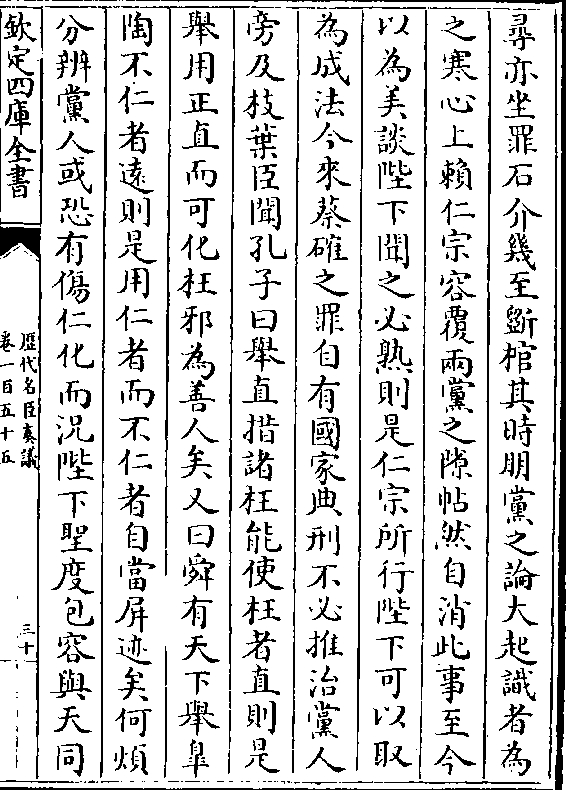 尋亦坐罪石介幾至斵棺其時朋黨之論大起識者為
之寒心上賴仁宗容覆兩黨之隙帖然自消此事至今
以為美談陛下聞之必熟則是仁宗所行陛下可以取
為成法今來蔡確之罪自有國家典刑不必推治黨人
旁及枝葉臣聞孔子曰舉直措諸枉能使枉者直則是
舉用正直而可化枉邪為善人矣又曰舜有天下舉臯
陶不仁者遠則是用仁者而不仁者自當屏迹矣何煩
分辨黨人或恐有傷仁化而況陛下聖度包容與天同
欽定四庫全書
歷代名臣奏議
卷一百五十五
三十